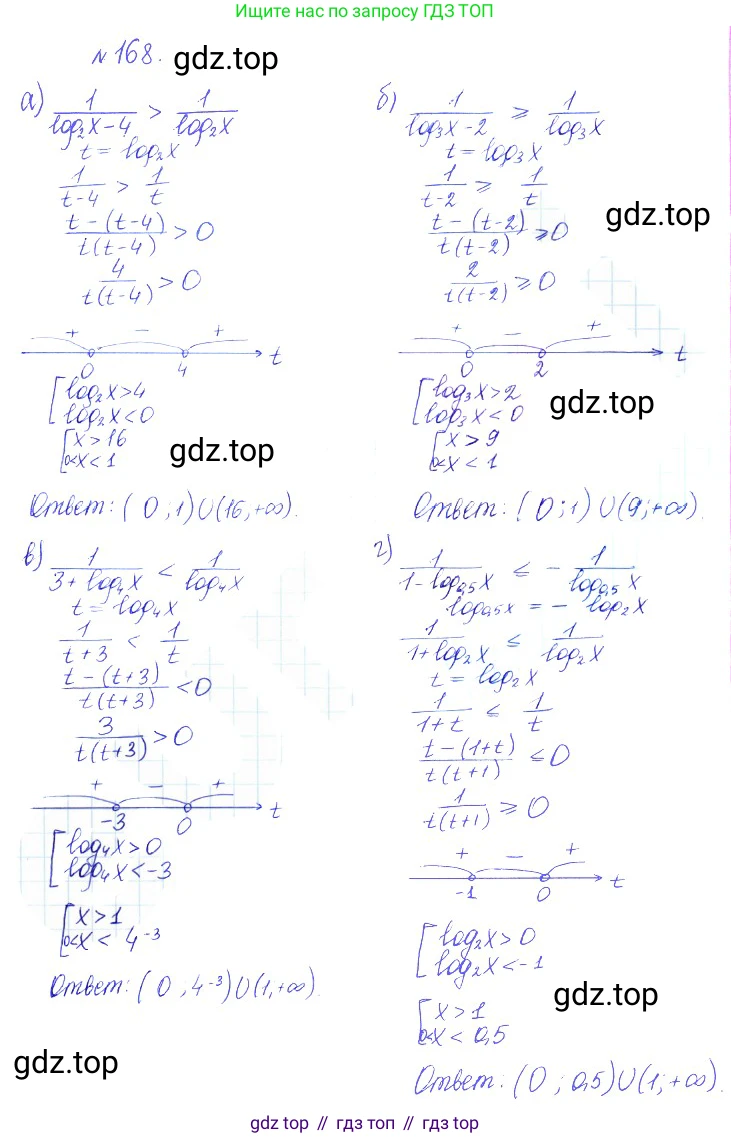 Ищите нас по запросу ГДЗ ТОП
№168.
gdz.top
а) 1/(log₂x-4) > 1/log₂x
t = log₂x
1/(t-4) > 1/t
(t-(t-4))/(t(t-4)) > 0
4/(t(t-4)) > 0
+ − +
0 4 t
[log₂x>4
log₂x<0
[x>16
0<x<1
gdz.top
Ответ: (0;1)∪(16,+∞).
б) 1/(log₃x-2) ⩾ 1/log₃x
t = log₃x
1/(t-2) ⩾ 1/t
gdz.top
(t-(t-2))/(t(t-2)) ⩾ 0
2/(t(t-2)) ⩾ 0
+ − +
0 2 t
[log₃x>2
log₃x<0
gdz.top
[x>9
0<x<1
Ответ: (0;1)∪(9;+∞).
в) 1/(3+log₄x) < 1/log₄x
t = log₄x
1/(t+3) < 1/t
(t-(t+3))/(t(t+3)) < 0
3/(t(t+3)) > 0
+ − +
-3 0 t
[log₄x>0
log₄x<-3
[x>1
0<x<4⁻³
Ответ: (0,4⁻³)∪(1,+∞).
gdz.top
г) 1/(1-log₀,₅x) ⩽ - 1/log₀,₅x
log₀,₅x = - log₂x
1/(1+log₂x) ⩽ 1/log₂x
t = log₂x
1/(1+t) ⩽ 1/t
(t-(1+t))/(t(t+1)) ⩽ 0
1/(t(t+1)) ⩾ 0
+ − +
-1 0 t
[log₂x>0
log₂x<-1
gdz.top
[x>1
0<x<0,5
Ответ: (0; 0,5)∪(1;+∞).
gdz.top // гдз топ // гдз.top